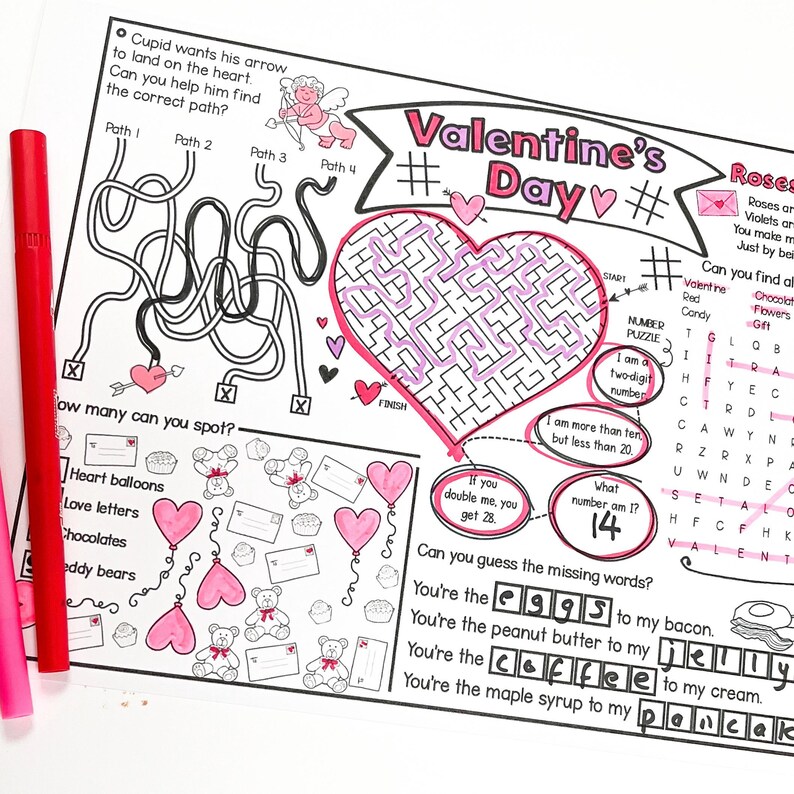 Cupid wants his arrow
to land on the heart.
Can you help him find
the correct path?
Path 1
Path 2
Path 3
Path 4
X
X
X
Valentine's
Day
START
FINISH
Roses
Roses ar
Violets ar
You make m
Just by bei
Can you find al
Valentine
Red
Candy
Chocolat
Flowers
Gift
T G L Q B
I I T R A
H F Y E C
C T R D L
C A W Y N
R Z R X P A
U W N D E C
S E T A L O
H F C F H K
V A L E N T
NUMBER
PUZZLE
I am a
two-digit
number.
I am more than ten,
but less than 20.
If you
double me, you
get 28.
What
number am I?
14
ow many can you spot?
Heart balloons
Love letters
Chocolates
eddy bears
Can you guess the missing words?
You're the eggs to my bacon.
You're the peanut butter to my jelly
You're the coffee to my cream.
You're the maple syrup to my pancak